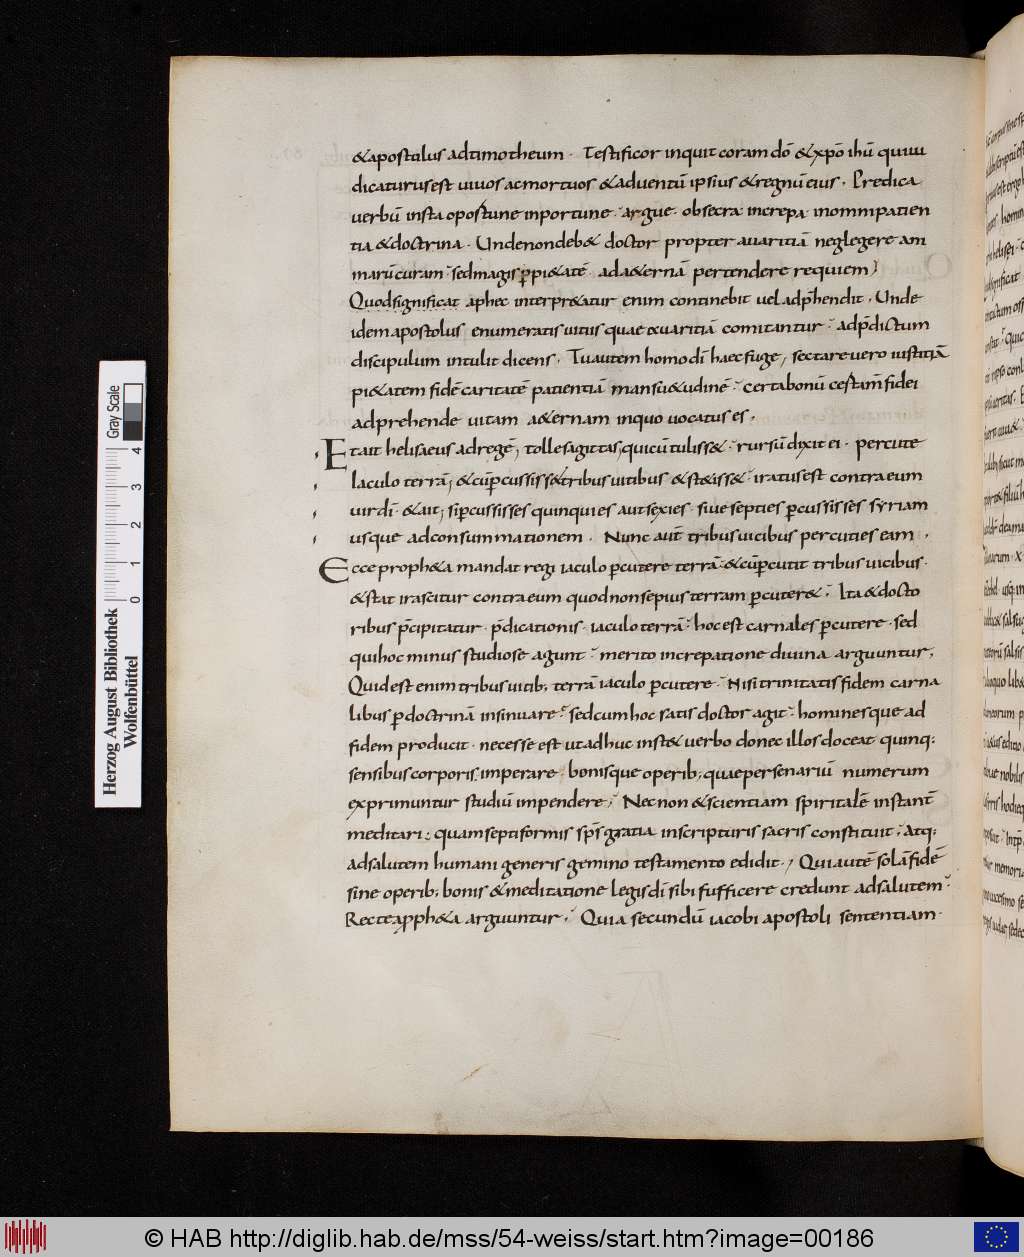 &apostolus adtimotheum. Testificor inquit coram dō &xpō ihū quiiu
dicaturusest uiuos acmortuos &aduentū ipsius &regnū eius. Predica
uerbū insta oportune inportune. argue. obsecra increpa inomnipatien
tia &doctrina. Undenondeb& doctor propter auaritiā neglegere ani
marū curam. sedmagis p pi&atē. ada&ernā pertendere requiem;
Quodsignificat aphec interpr&atur enim continebit uel adp̄hendit. Unde
idem apostolus enumeratis uitiis quae auaritiā comitantur. adp̄dictum
discipulum intulit dicens. Tuautem homo dī haec fuge, sectare uero iustitiā
pi&atem fidē caritatē patientiā mansu&udinē. certabonū certam̄ fidei
adprehende uitam a&ernam inquo uocatus es.
Etait helisaeus adregē, tolle sagittas, quicū tuliss&. rursū dixit ei. percute
Iaculo terrā; &cū percussiss& tribus uicibus &st&iss&. iratusest contra eum
uir dī. &ait; si percussisses quinquies aut sexies. siue septies percussisses syriam
usque adconsummationem. Nunc aut̄ tribus uicibus percuties eam.
Ecce proph&a mandat regi iaculo percutere terrā. &cū percutit tribus uicibus.
&stat irascitur contra eum quod non sepius terram percuter&; Ita &docto
ribus p̄cipitatur. p̄dicationis. iaculo terrā. hoc est carnales percutere. sed
quihoc minus studiose agunt. merito increpatione diuina arguuntur,
Quid est enim tribus uicib; terrā iaculo percutere. Nisi trinitatis fidem carna
libus p doctrinā insinuare. sedcum hoc satis doctor agit. hominesque ad
fidem producit. necesse est ut adhuc inst& uerbo donec illos doceat quinq;
sensibus corporis, imperare. bonisque operib; quae persenariū numerum
exprimuntur studiū impendere; Necnon &scientiam spiritalē instant̄
meditari; quam septiformis sp̄s gratia inscripturis sacris constituit. Atq;
adsalutem humani generis gemino testamento edidit., Quiautē solā fidē
sine operib; bonis &meditatione legis dī sibi sufficere credunt adsalutem.
Recte a proph&a arguuntur; Quia secundū iacobi apostoli sententiam.
Herzog August Bibliothek
Wolfenbüttel
Gray Scale
0 1 2 3 4
© HAB http://diglib.hab.de/mss/54-weiss/start.htm?image=00186